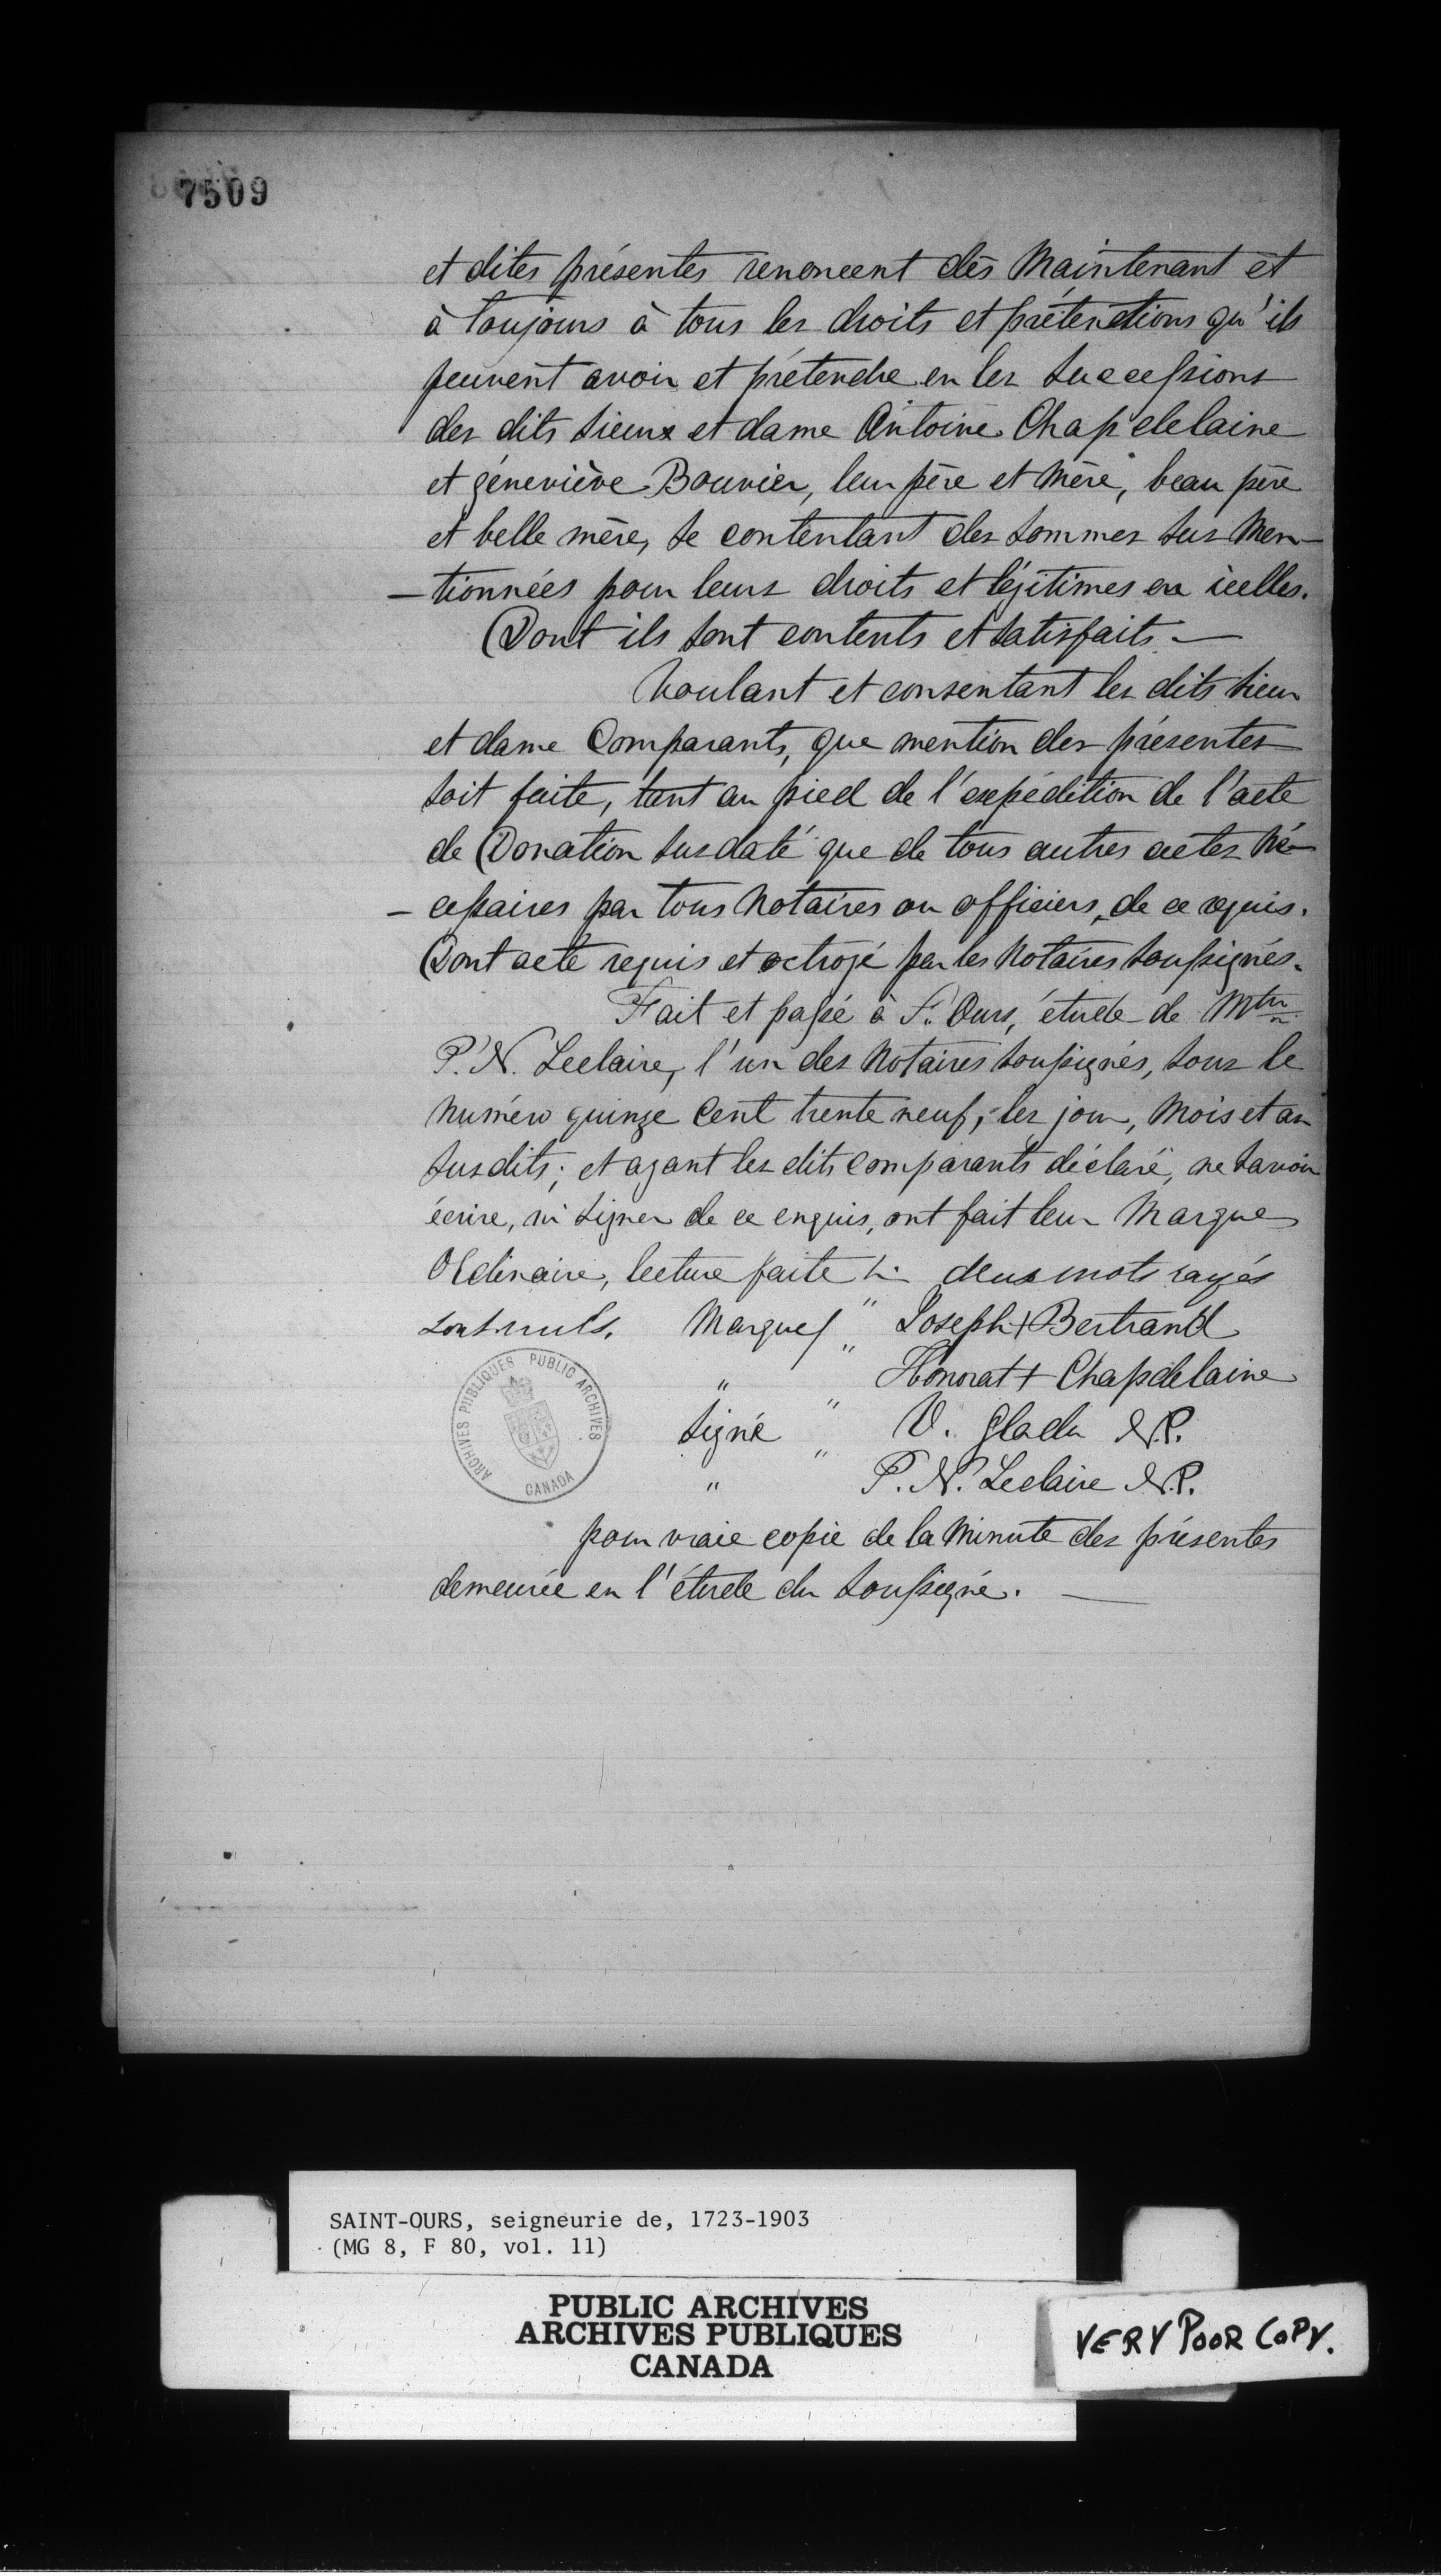 7509
et dites présentes renoncent dès Maintenant et
à toujours à tous les droits et prétenctions qu'ils
peuvent avoir et prétendre en les successions
des dits sieur et dame Antoine Chapdelaine
et géneviève Bouvier, leur père et mère, beau père
et belle mère, se contentant des sommes sus men-
-tionnées pour leurs droits et légitimes en icelles.
Dont ils sont contents et satisfaits. —
Voulant et consentant les dits sieur
et dame Comparants, que mention des présentes
soit faite, tant au pied de l'expédition de l'acte
de Donation susdaté que de tous autres actes Né-
-cessaires par tous Notaires ou officiers, de ce requis.
Dont acte requis et octroyé par les Notaires soussignés.
Fait et passé à St. Ours, étude de Mtre
P. N. Leclaire, l'un des Notaires soussignés, sous le
Numéro quinze Cent trente neuf, les jour, Mois et an
susdits; et ayant les dits comparants déclaré, ne savoir
écrire, ni signer de ce enquis, ont fait leur Marque
Ordinaire, lecture faite deux mots rayés
sont nuls. Marque " Joseph + Bertrand
" " Honorat + Chapdelaine
Signé " V. Gladu N.P.
" " P. N. Leclaire N.P.
pour vraie copie de la Minute des présentes
demeurée en l'étude du soussigné. —
ARCHIVES PUBLIQUES PUBLIC ARCHIVES
CANADA
SAINT-OURS, seigneurie de, 1723-1903
(MG 8, F 80, vol. 11)
PUBLIC ARCHIVES
ARCHIVES PUBLIQUES
CANADA
VERY POOR COPY.